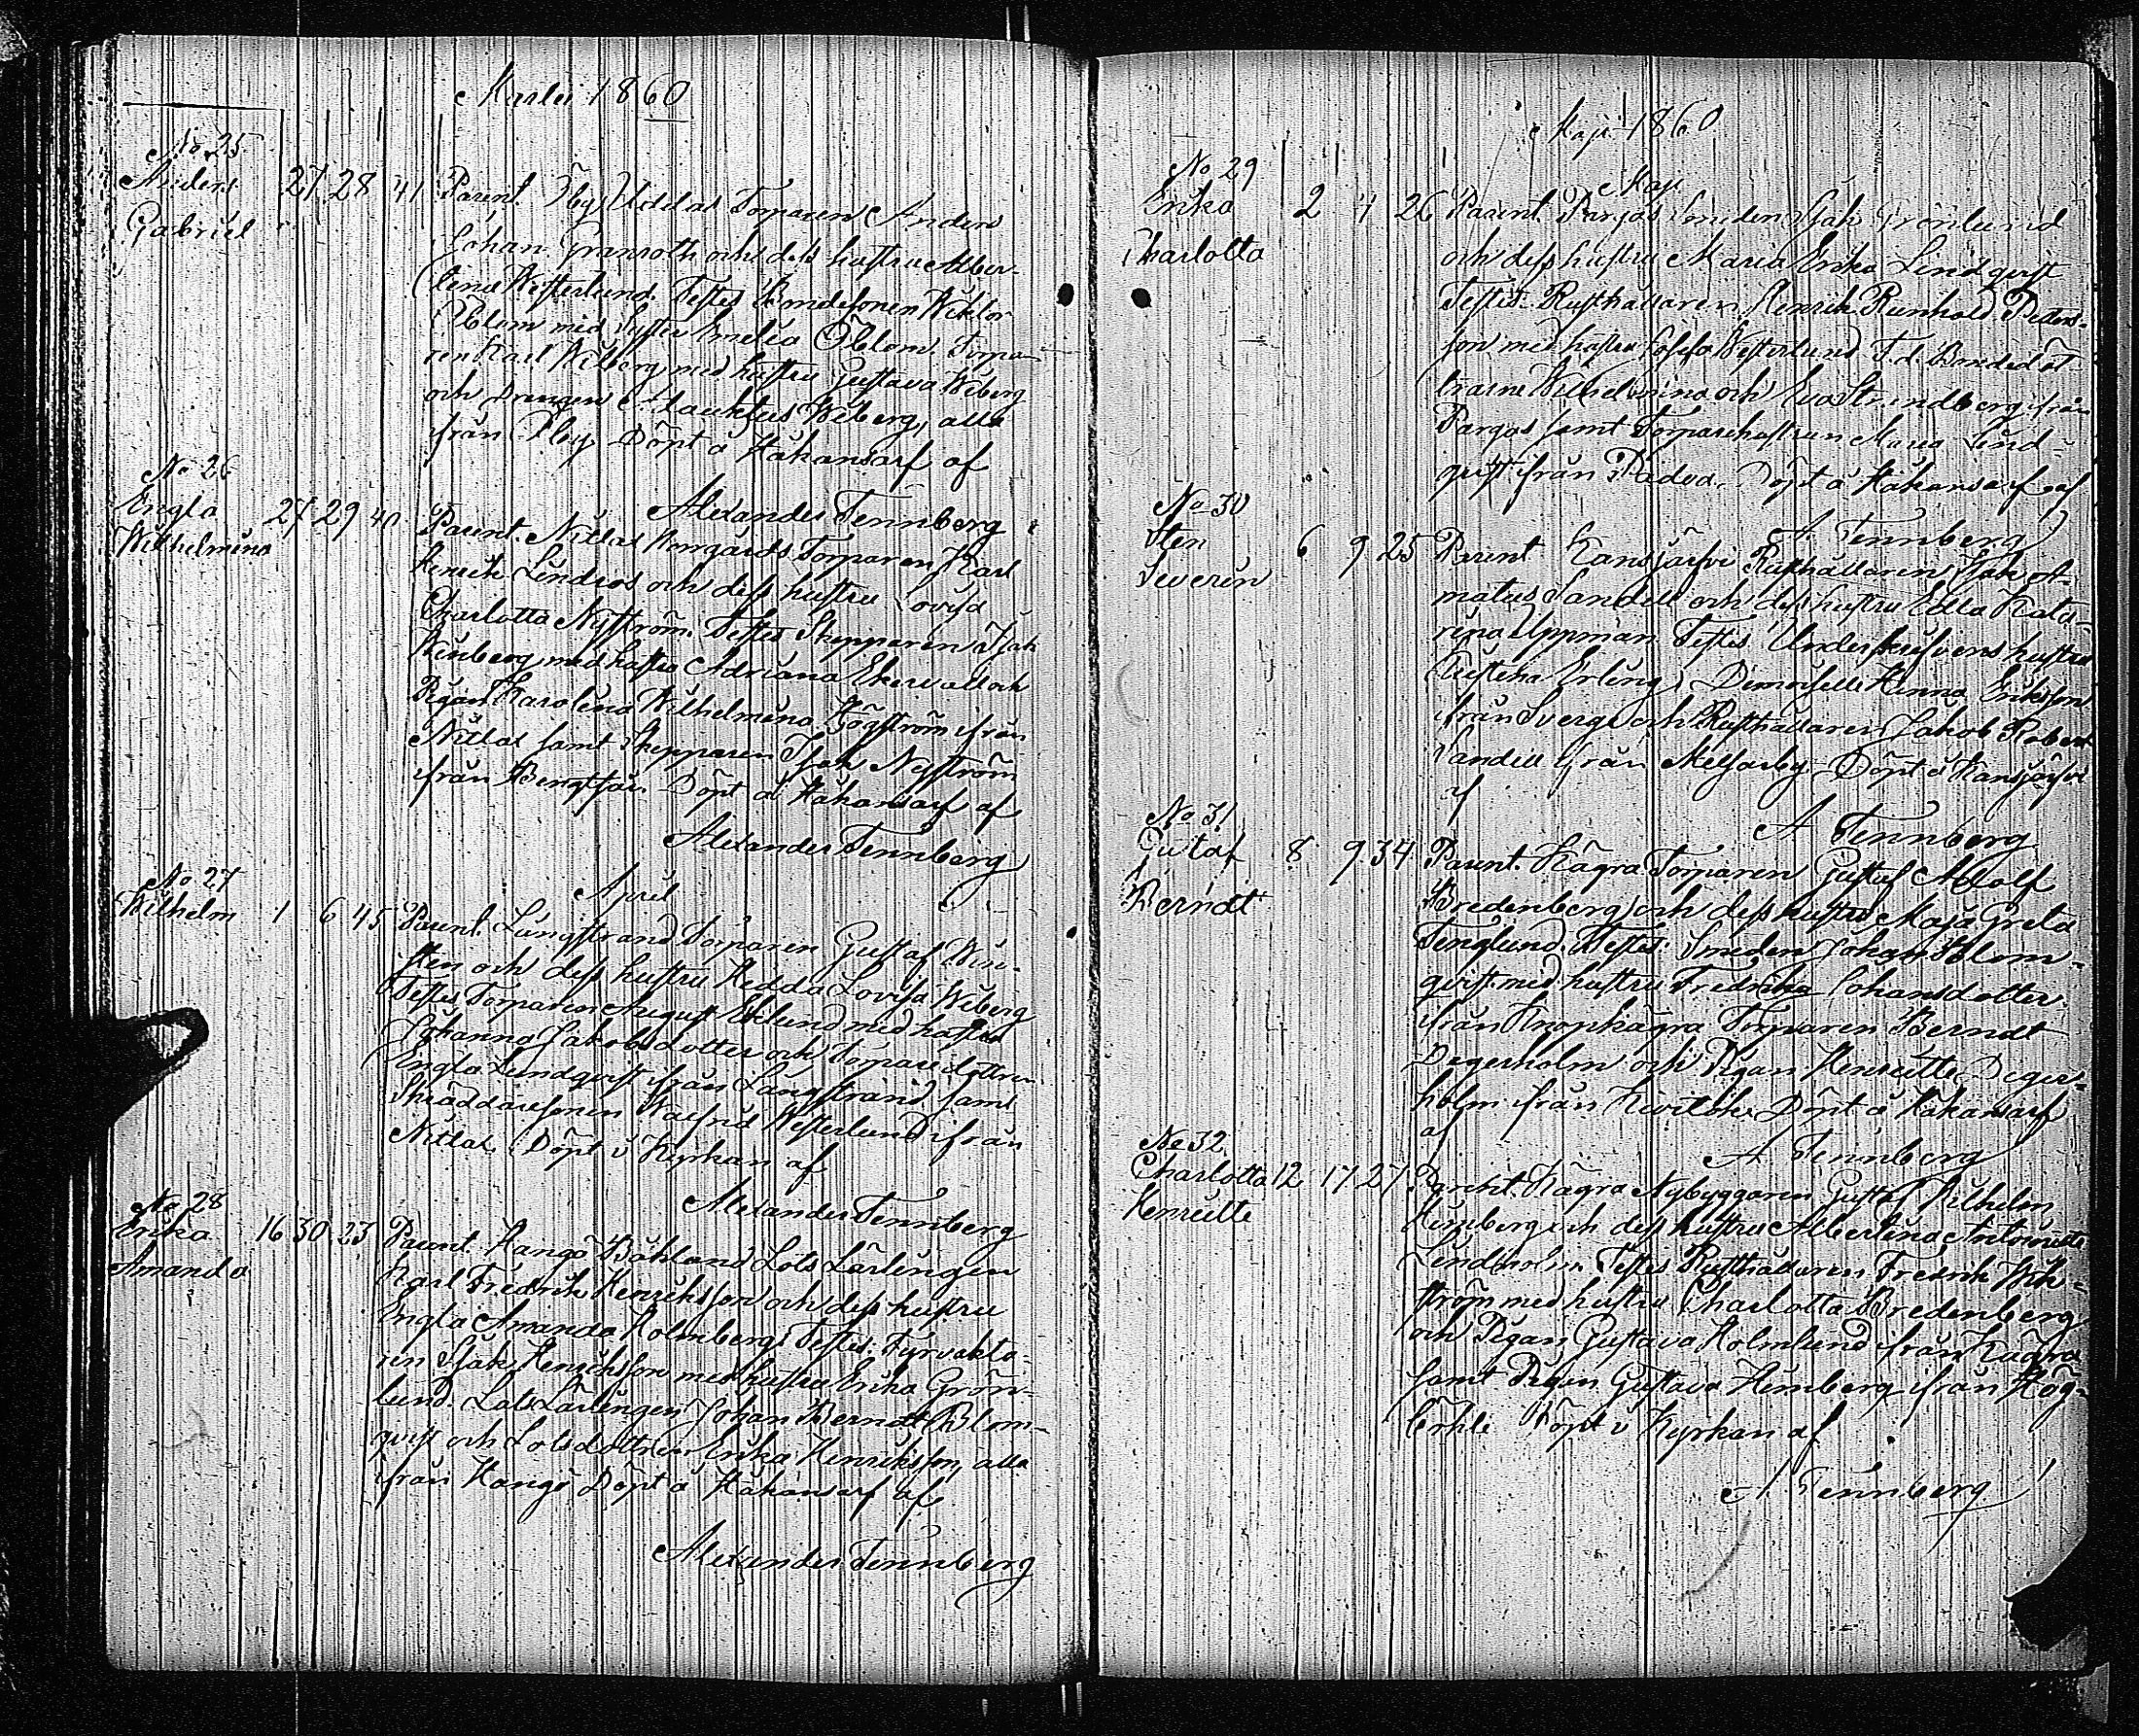 Martii 1860
No 25
Anders 27 28 41 Parent. Öby Uddas Torparen Anders
Gabriel
Johan Granroth och dess hustru Alber-
tina Westerlund. Testes Bondesonen Wiktor
Öblom med Syster Emelia Öblom Torpa-
ren Karl Wiberg med hustru Gustava Wiberg
och Drengen Wiberg, alla
från Öby. Döpt å Håkansarf af
Alexander Tennberg
No 26
Engla 27 29 40 Parent. Nittlax Norrgårds Torparen Karl
Wilhelmina
Henrik Lindros och dess hustru Lovisa
Charlotta Nyström. Testes Skepparen Isak
Winberg med hustru Adriana Ekewall och
Pigan Karolina Wilhelmina Högström ifrån
Nittlax samt Skepparen Isak Nyström
ifrån Bengtsår. Döpt å Håkansarf af
Alexander Tennberg
April
No 27
Wilhelm 1 6 45 Parent. Långstrand Torparen Gustaf Win-
sten och dess hustru Hedda Lovisa Wiberg
Testes Torparen August Eklund med hustru
Johanna Jakobsdotter och Torpare dottren
Engla Lindqvist ifrån Långstrand samt
Skräddaresonen Walfrid Westerlund ifrån
Nittlax. Döpt i Kyrkan af
Alexander Tennberg
No 28
Erika 16 30 23 Parent. Hangö Båkland Lots Lärlingen
Amanda
Karl Fredrik Henriksson och dess hustru
Engla Amanda Holmberg. Testes. Fyrvakta-
ren Isak Henriksson med hustru Erika Grön-
lund. Lots Lärlingen Johan Berndt Blom-
qvist och Lotsdottren Erika Henriksson, alla
ifrån Hangö Döpt å Håkansarf af
Alexander Tennberg
Maji 1860
Maji
No 29
Erika 2 4 26 Parent. Pargas Smeden Isak Grönlund
Charlotta
och dess hustru Maria Erika Lindqvist
Testes. Rusthållaren Henrik Reinhold Peters-
son med hustru Josefa Westerlund F.d. Bondedöt-
trarne Wilhelmina och Eva Strandberg ifrån
Pargas samt Torparehustrun Maria Lind-
qvist ifrån Padva. Döpt å Håkansarf af
A Tennberg
No 30
Sten 6 9 25 Parent Kansjärfvi Rusthållaren Isak A-
Severin
matus Sandell och dess hustru Edla Kata-
rina Uppman. Testes Underskrifvens hustru
Kristina Erling, Dimoiselle Hanna Eriksson
ifrån Sverge och Rusthållaren Jakob Robert
Sandell ifrån Melsarby. Döpt å Kansjärfvi
af
A Tennberg
No 31
Gustaf 8 9 34 Parent. Kågra Torparen Gustaf Adolf
Berndt
Bredenberg och dess hustru Maja Greta
Tenglund. Testes Smeden Johan Blom-
qvist med hustru Fredrika Johansdotter
ifrån Knopkägra Torparen Berndt
Degerholm och Pigan Henriette Deger-
holm ifrån Döpt å Håkansarf
af
A Tennberg
No 32
Charlotta 12 17 27 Parent. Kågra Nybyggaren Gustaf Wilhelm
Henriette
Himberg och dess hustru Albertina Antoinette
Lindholm Testes Rusthållaren Fredrik Wik-
ström med hustru Charlotta Bredenberg
och Pigan Gustava Holmlund ifrån Kågra
samt Pigan Gustava Himberg ifrån Hög-
Döpt i Kyrkan af
A Tennberg